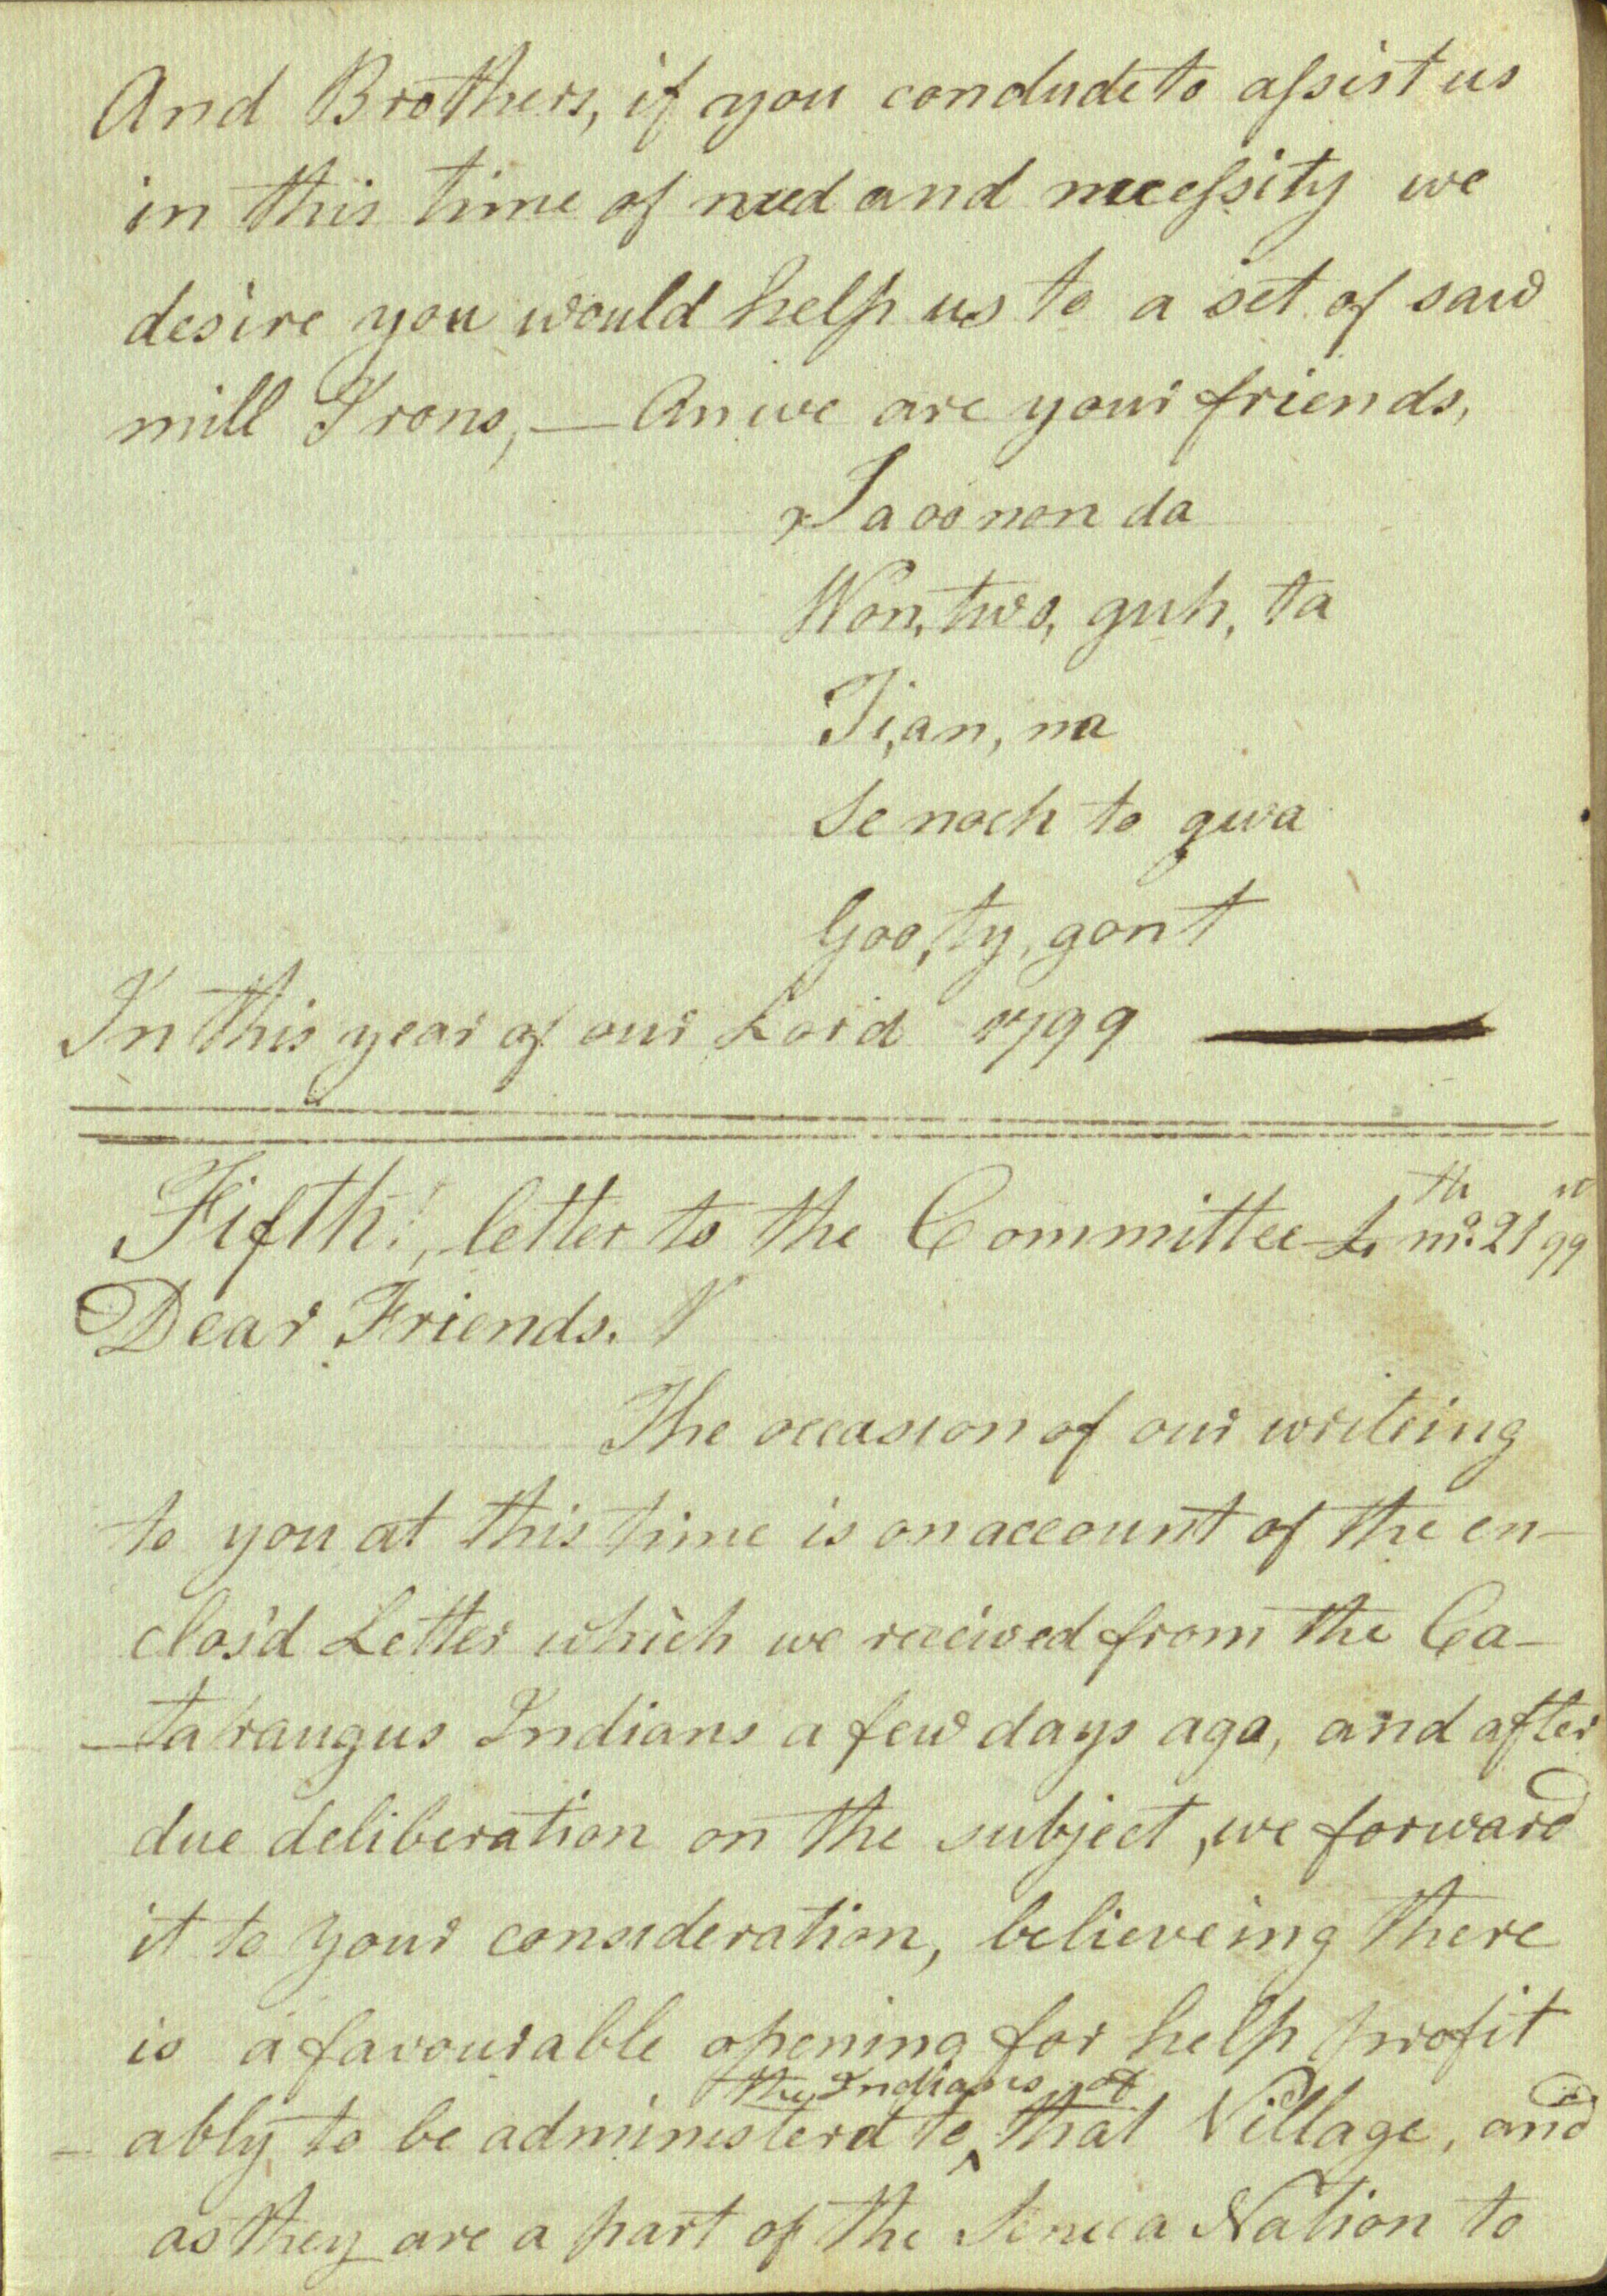 And Brothers, if you conclude to assist us
in this time of need and necessity we
desire you would help us to a set of saw
mill Irons, — An we are your friends,
Jaoo non da
Won, two, guh, ta
Ti,an, na
Se noch to gwa
Goo, ty, gont
In this year of our Lord 1799 —
Fifth!, letter to the Committee mo. 21 99
Dear Friends.
The occasion of our writeing
to you at this time is on account of the en-
clos'd Letter which we received from the Ca-
-taraugus Indians a few days ago, and after
due deliberation on the subject, we forward
it to your consideration, believeing there
is a favourable opening for help profit
-ably to be administerd to ^ the Indians of that Village, and
as they are a part of the Seneca Nation to